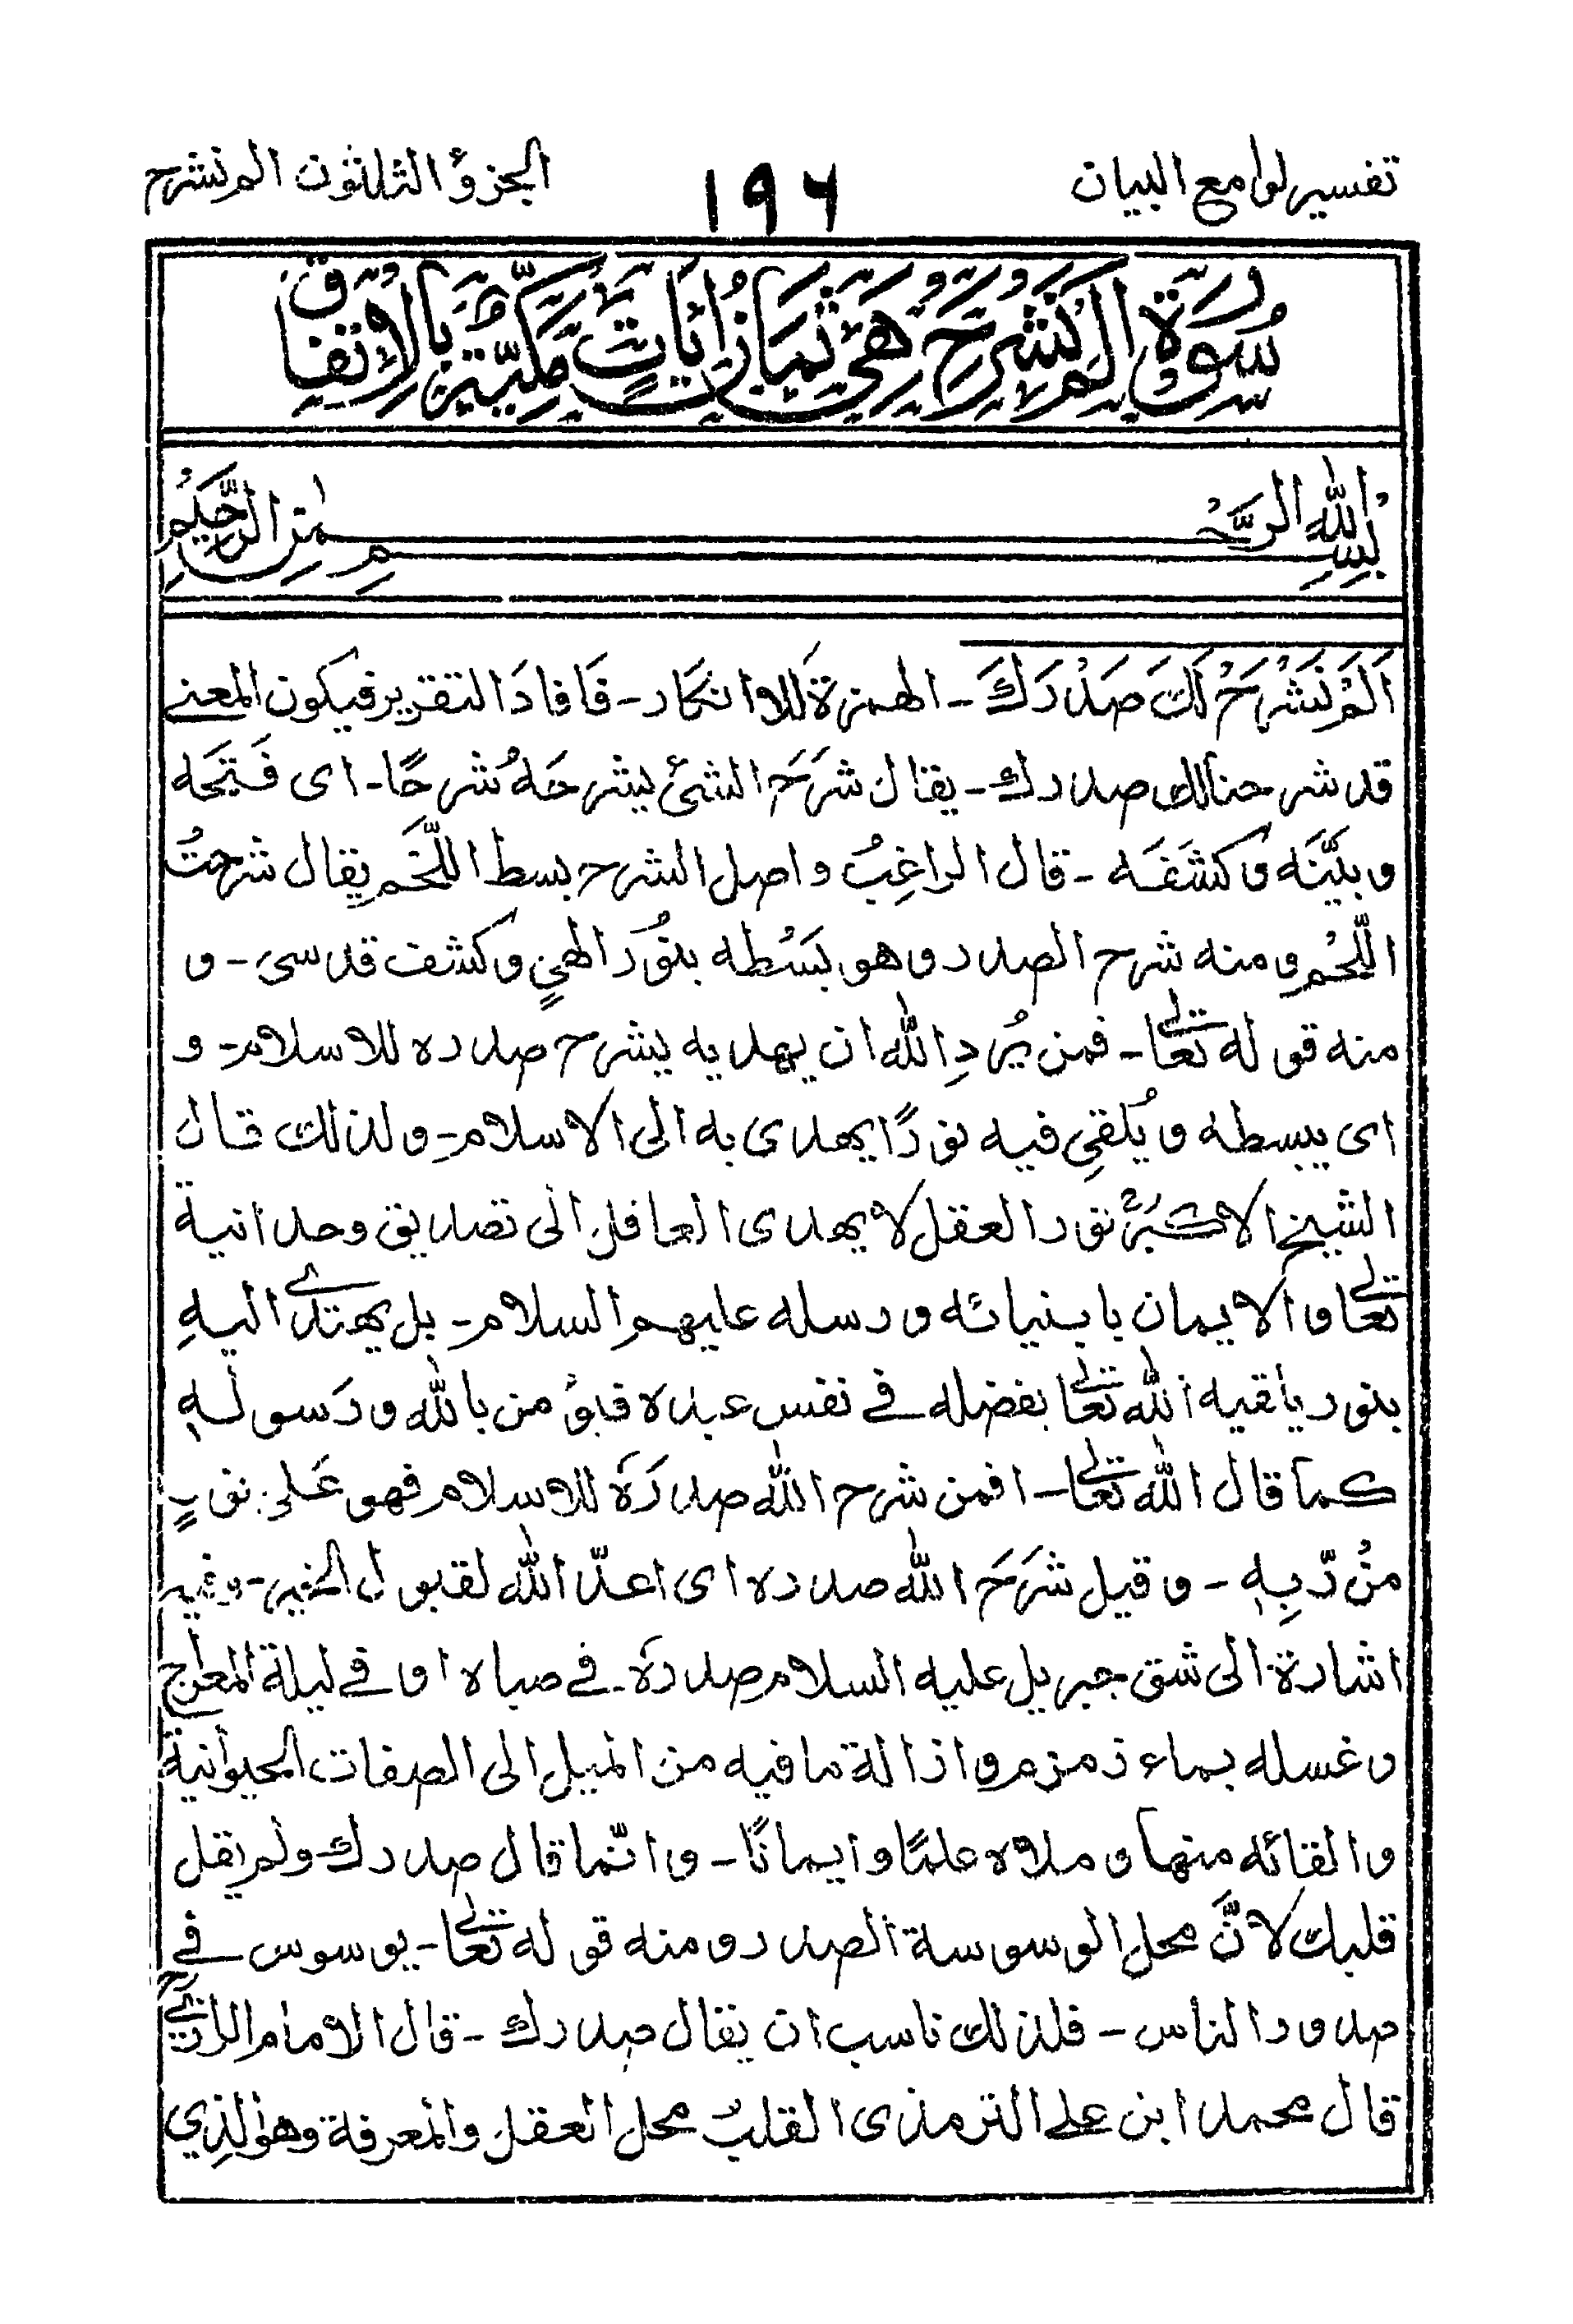 تفسير لوامع البيان ١٩٦ الجزؤ الثلثون الم نشرح
سورة الم نشرح هي ثمان ايات مكية بالاتفاق
بسم الله الرحمن الرحيم
اَلَمْ نَشْرَحْ لَكَ صَدْرَكَ - الهمزة للانكار - فَافادَ التقرير فيكون المعنے
قد شرحنالك صدرك - يقال شَرَحَ الشئ يشرحَهُ شرحًا - اى فَتَحَه
و بيَّنَه و كشَفَه - قال الراغبُ و اصل الشرح بسط اللَّحَم يقال شرحتُ
اللَّحْم و منه شرح الصدر و هو بَسْطه بنُور الٰهىٍ و كشف قدسى - و
منه قوله تعالى - فمن يُردِ الله ان يهديه يشرح صدره للاسلام - و
اى يبسطه و يُلقىِ فيه نورًا يهدى به الى الاسلام - و لذلك قال
الشيخ الاكبرؒ نور العقل لا يهدى العاقل الى تصديق وحدانية
تعالى و الايمان بابنيائه و رسله عليهم السلام - بل يهتدے اليهِ
بنور يلقيه الله تعالى بفضله فے نفس عبده فيؤمن بالله و رَسولهٖ
كما قال الله تعالى - افمن شرح الله صدرَه للاسلام فهو عَلى نورٍ
منْ رّبهٖ - و قيل شَرَحَ الله صدره اى اعدّ الله لقبول الخير - و فيه
اشارة الى شق جبريل عليه السلام صدرَه - فے صباه او فے ليلة المعراج
و غسله بماء زمزم و ازالة ما فيه من الميل الى الصفات الحيوانية
و القائه منها و ملاه علمًا و ايمانًا - و انّما قال صدرك و لم يقل
قلبك لانَّ محل الوسوسة الصدر و منه قوله تعالى - يوسوس فے
صدور الناس - فلذلك ناسب ان يقال صدرك - قال الامام الرازےؒ
قال محمد ابن علے الترمذى القلبُ محل العقل و المعرفة و هو الذي